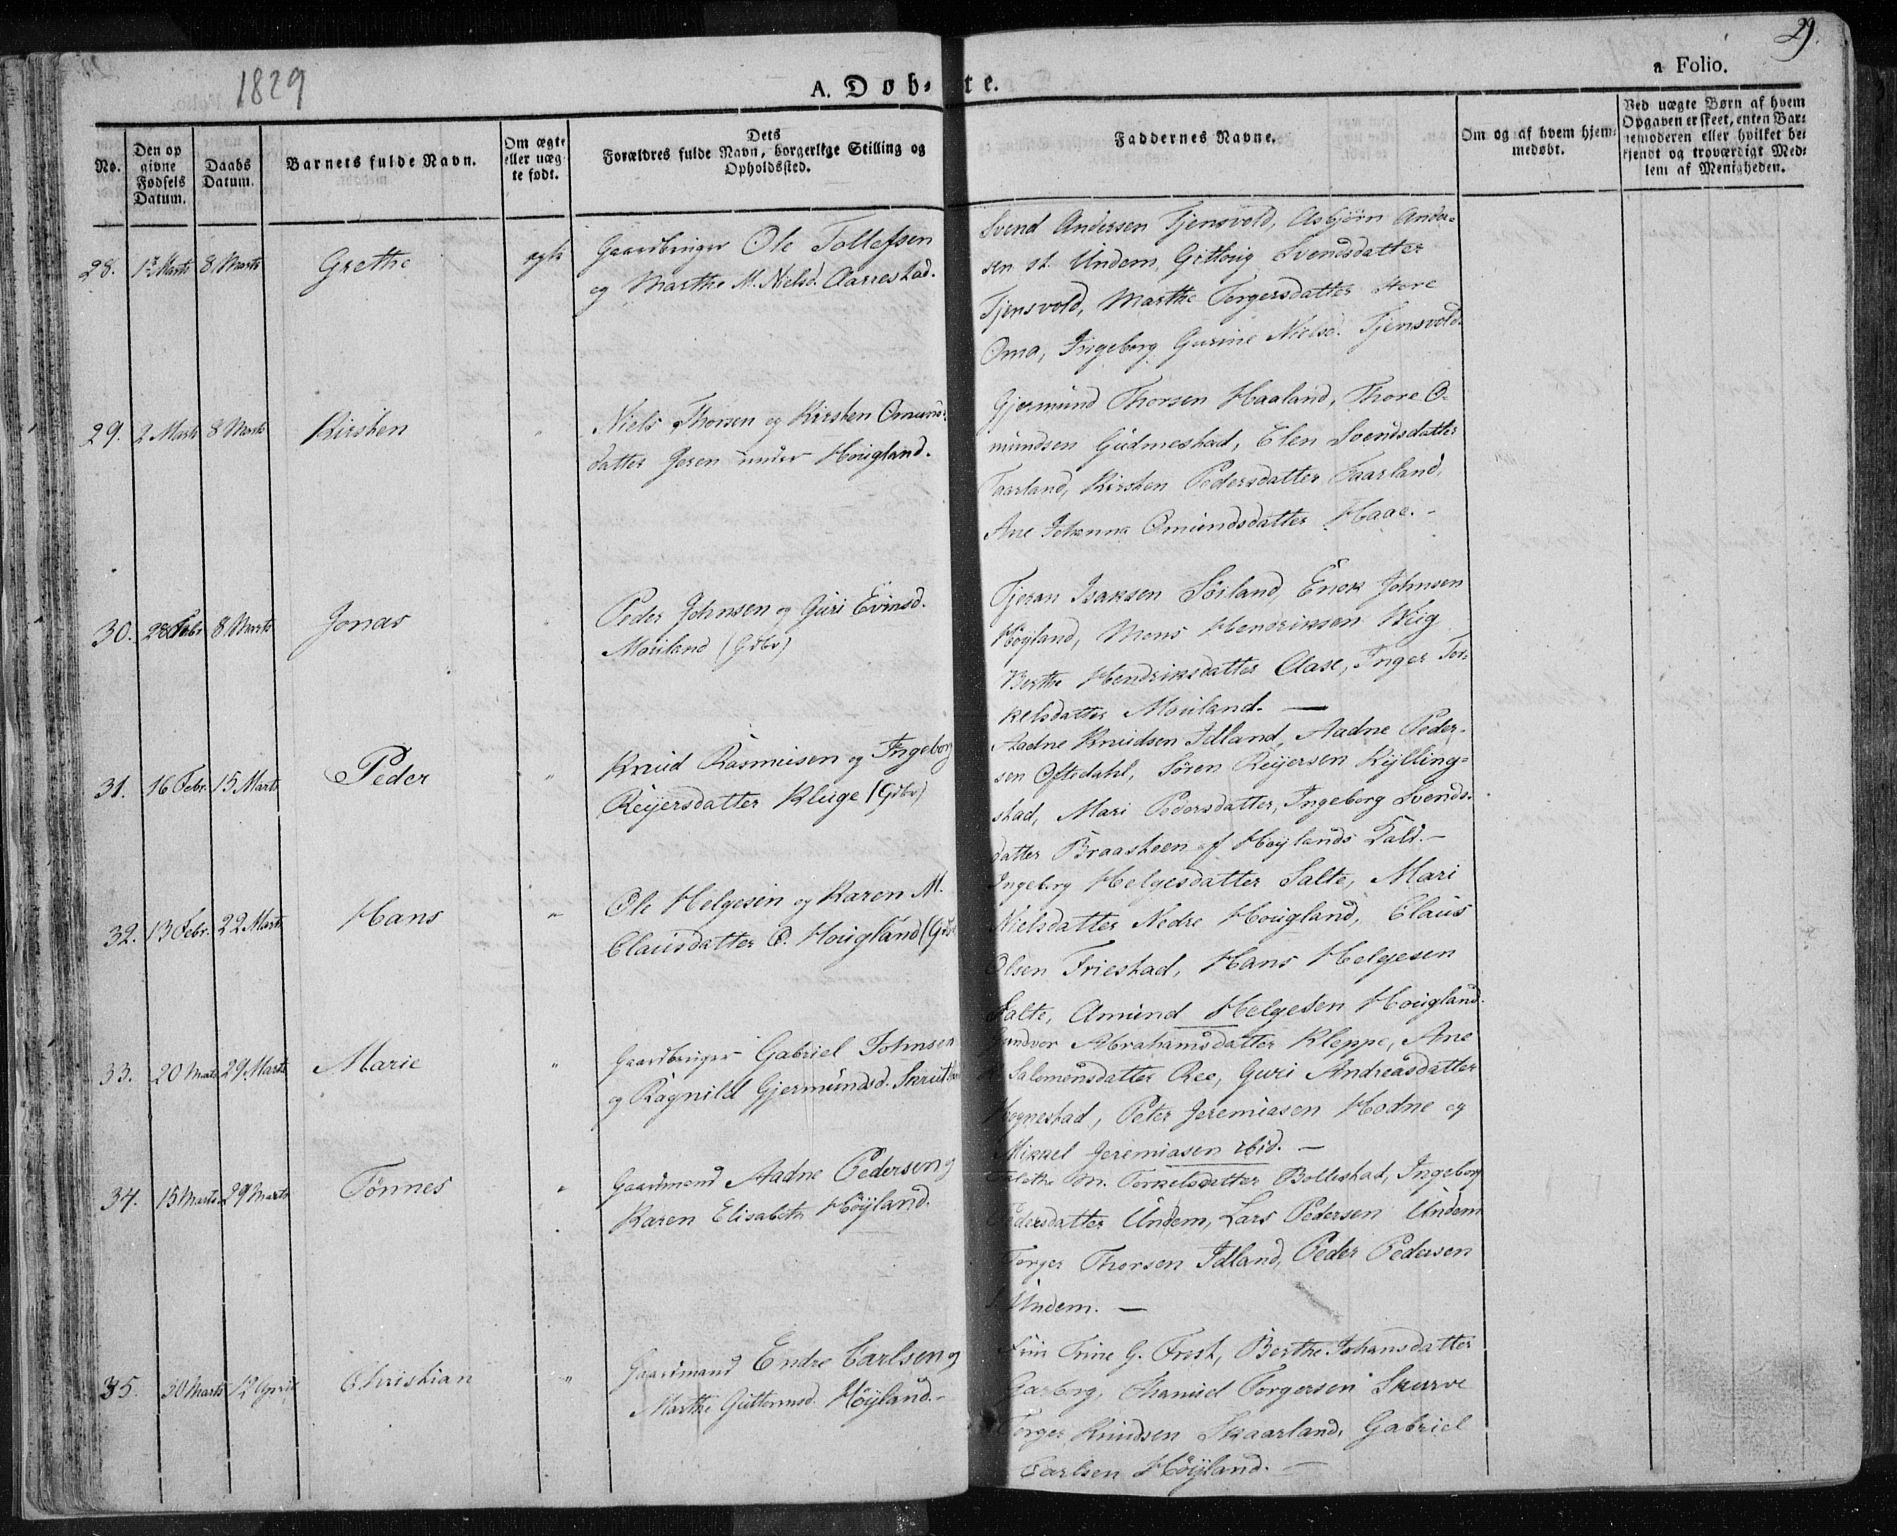 29.
1829
A. Døb-te.
a Folio.
No.
Den op
givne
Fødsels
Datum.
Daabs
Datum.
Barnets fulde Navn.
Om ægte
eller uæg-
te født.
Dets
Forældres fulde Navn, borgerlige Stilling og
Opholdssted.
Faddernes Navne.
Om og af hvem hjem-
medøbt.
Ved uægte Børn af hvem
Opgaven er skeet, enten Bar-
nemoderen eller hvilket be-
kjendt og troværdigt Med-
lem af Menigheden.
28. 1ste Marts 8 Marts Grethe ægte
Gaardbruger Ole Tollefsen
og Marthe M. Nielsd. Aarrestad.
Svend Andersen Tjensvold, Asbjörn Ander-
sen st. Undem, Gitlorig Svendsdatter
Tjensvold, Marthe Torgersdatter store
Oma, Ingeborg Gurine Nielsd. Tjensvold.
29. 2 Marts 8 Marts Kirsten "
Niels Thorsen og Kirsten Omunds-
datter Jeren under Hougland.
Gjermund Thorsen Haaland, Thore O-
mundsen Gudmestad, Elen Svendsdatter
Taarland, Kirsten Pedersdatter Taarland,
Ane Johanna Omundsdatter Haae. -
30. 28 Febr 8 Marts Jonas "
Peder Johnsen og Guri Evinsd.
Mauland (Gdbr)
Tjeran Isaksen Söiland, Enok Johnsen
Höyland, Mons Hendriksen Wiig
Berthe Hendriksdatter Aase, Inger Tor-
kelsdatter Mauland. —
31. 16 Febr. 15 Marts Peder "
Knud Rasmusen og Ingeborg
Reijersdatter Kluge (Gdbr)
Aadne Knudsen Idland, Aadne Peder-
sen Oftedahl, Sören Reijersen Kylling-
stad, Mari Pedersdatter, Ingeborg Svends-
datter Braasteen af Höylands Kald. -
32. 13 Febr. 22 Marts Hans "
Ole Helgesen og Karen M.
Clausdatter Ö. Hougland (Gdb
Ingeborg Helgesdatter Salte, Mari
Nielsdatter Nedre Hougland, Claus
Olsen Friestad, Hans Helgesen
Salte, Amund Helgesen Hougland.
33. 20 Marts 29 Marts Marie "
Gaardbruger Gabriel Johnsen
og Ragnild Gjermundsd.
Gundvor Abrahamsdatter Kleppe, Ane
Salomonsdatter Ree, Guri Andreasdatter
Hognestad, Peter Jeremiasen Hodne og
Mikkel Jeremiasen ibid. —
34. 15 Marts 29 Marts Tönnes "
Gaardmand Aadne Pedersen og
Karen Elisabeth Höÿland.
M. Torkelsdatter Bollestad, Ingeborg
Pedersdatter Undem, Lars Pedersen Undem
Torger Thorsen Idland, Peder Pedersen
Undem. —
35. 30 Marts 12 April Christian "
Gaardmand Endre Carlsen og
Marthe Guttormsd. Höÿland. -
Trine G. Frest, Berthe Johansdatter
Garborg, Thamuel Torgersen Skurve
Torger Knudsen Skaarland, Gabriel
Carlsen Höÿland. —